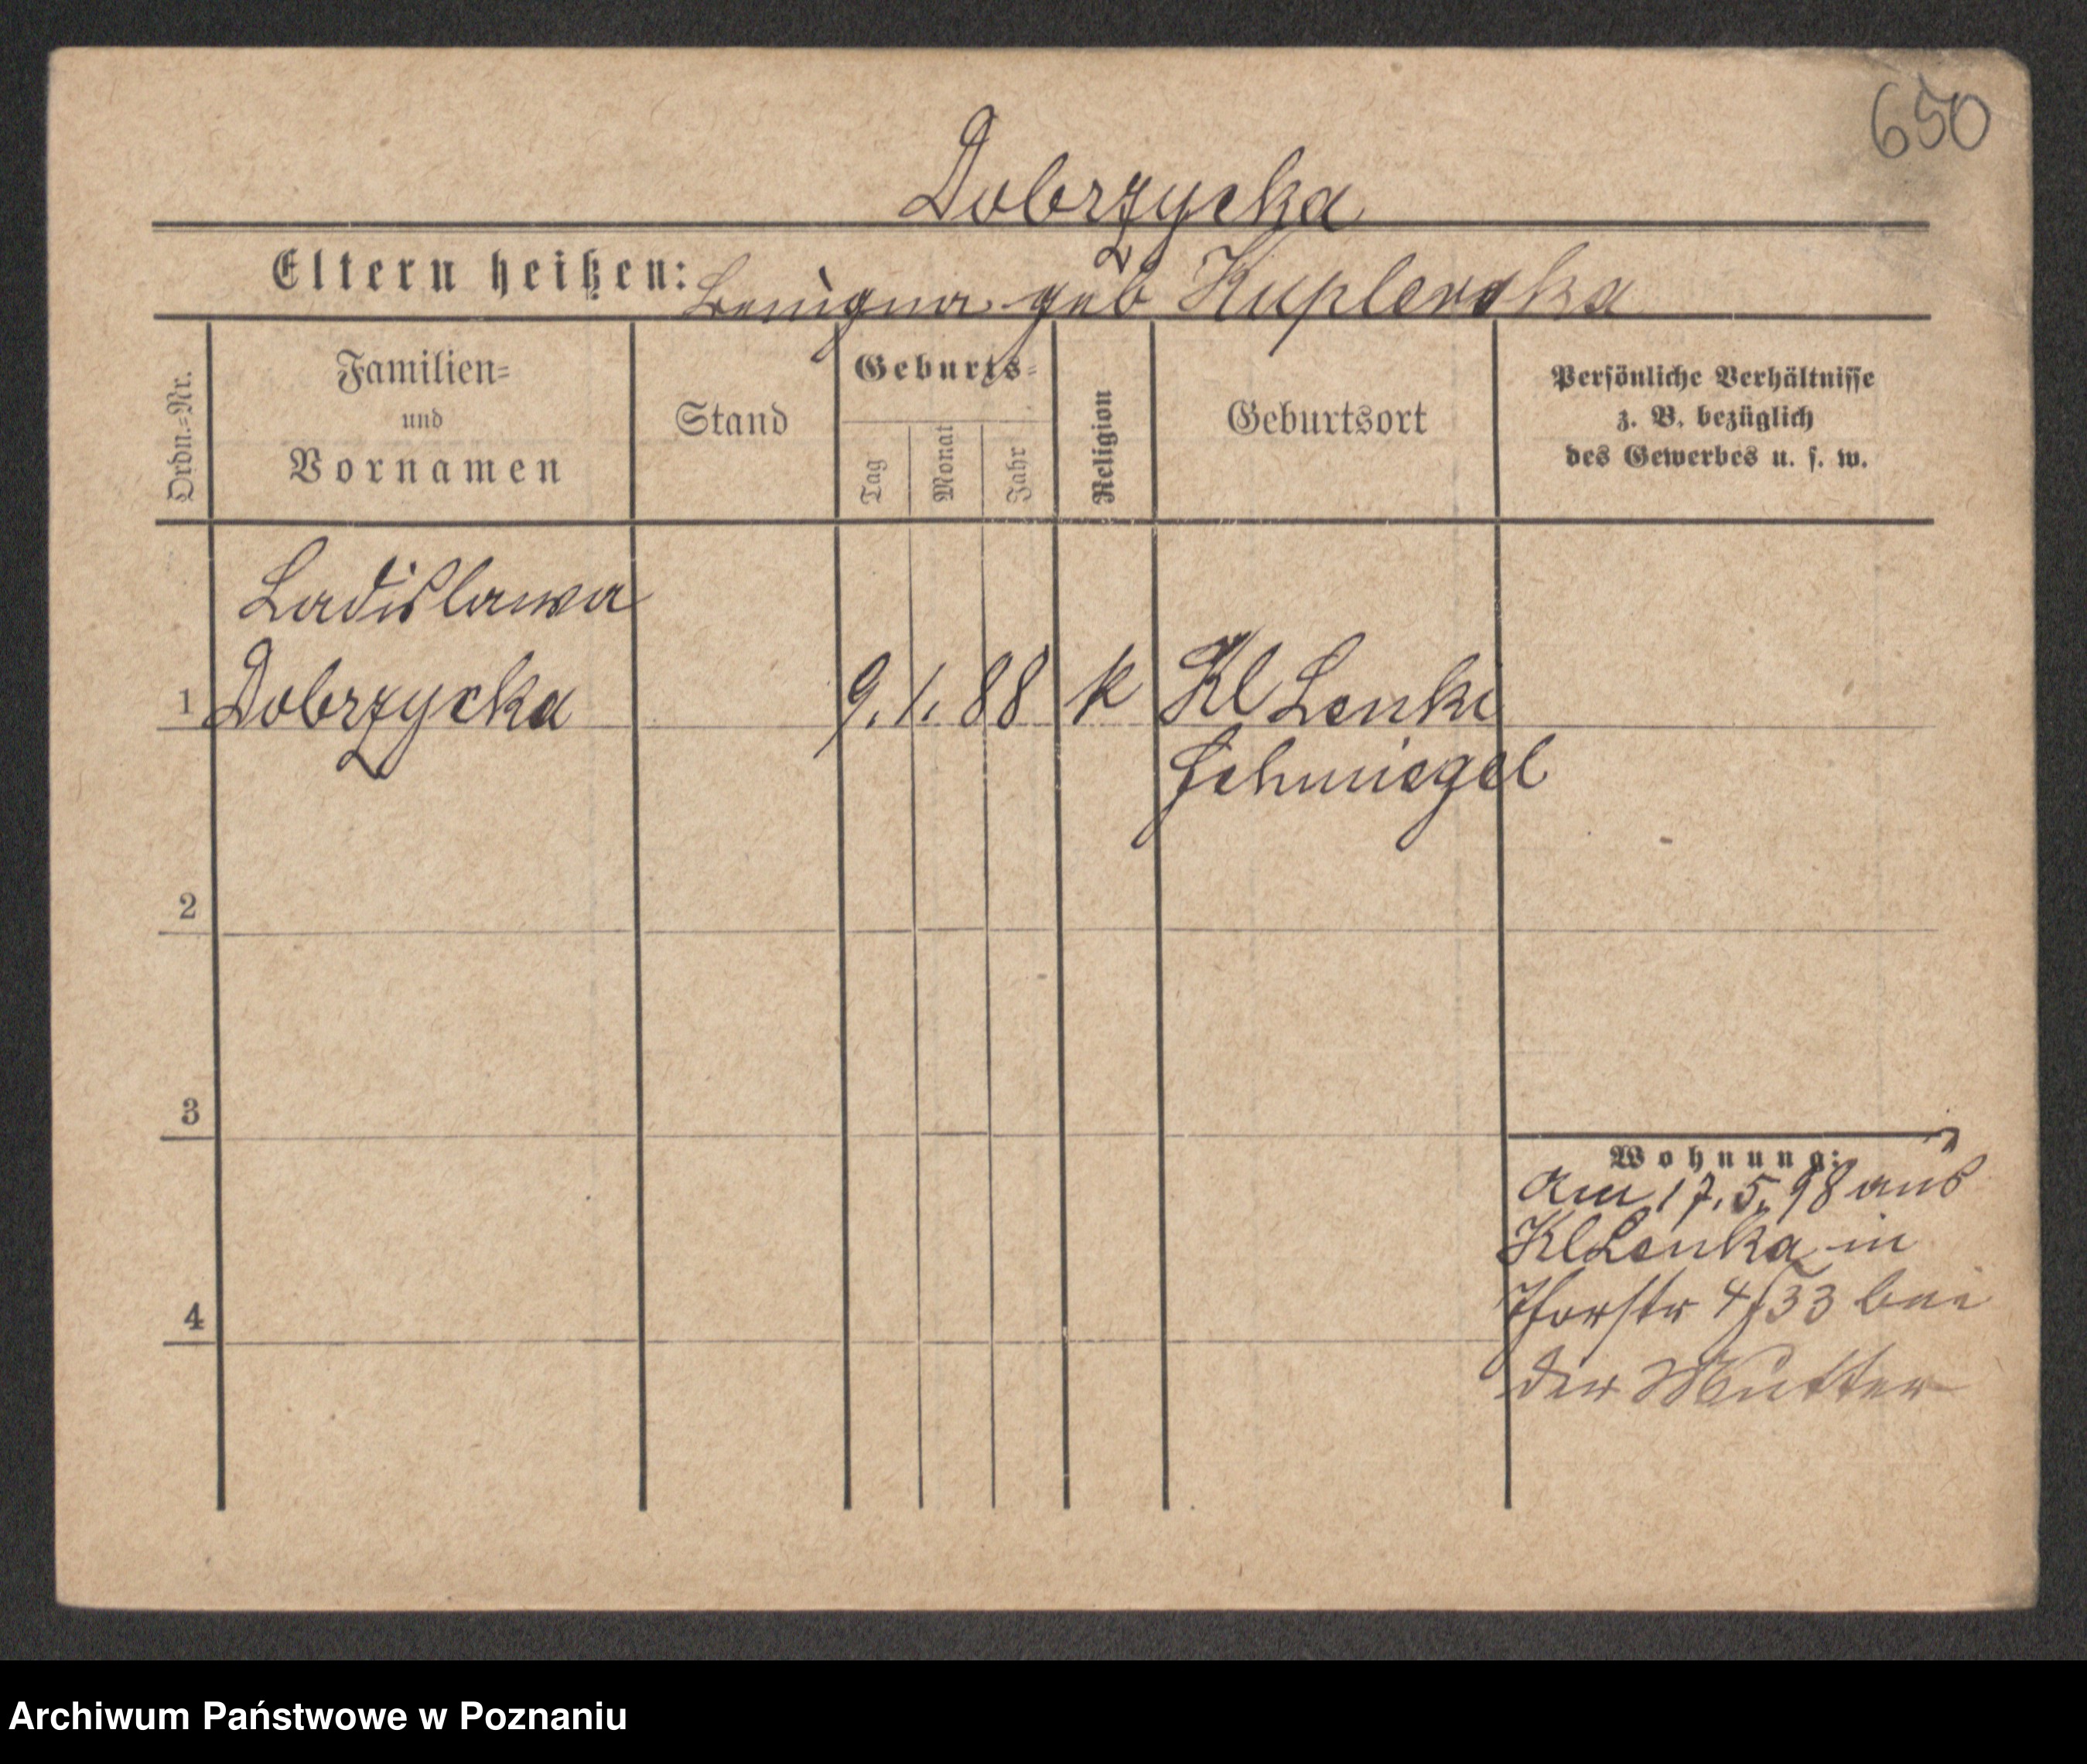 650
Dobrzycka
Eltern heißen: Benigna geb Kuplewska
Ordn.=Nr.
Familien=
und
Vornamen
Stand
Geburts=
Tag
Monat
Jahr
Religion
Geburtsort
Persönliche Verhältnisse
z. B. bezüglich
des Gewerbes u. s. w.
Ladislawa
1 Dobrzycka 9. 1. 88 k Kl Lenki
Schmiegel
2
3
4
Wohnung:
am 17.5.98 aus
Kl Lenka in
4/33 bei
der Mutter
Archiwum Państwowe w Poznaniu